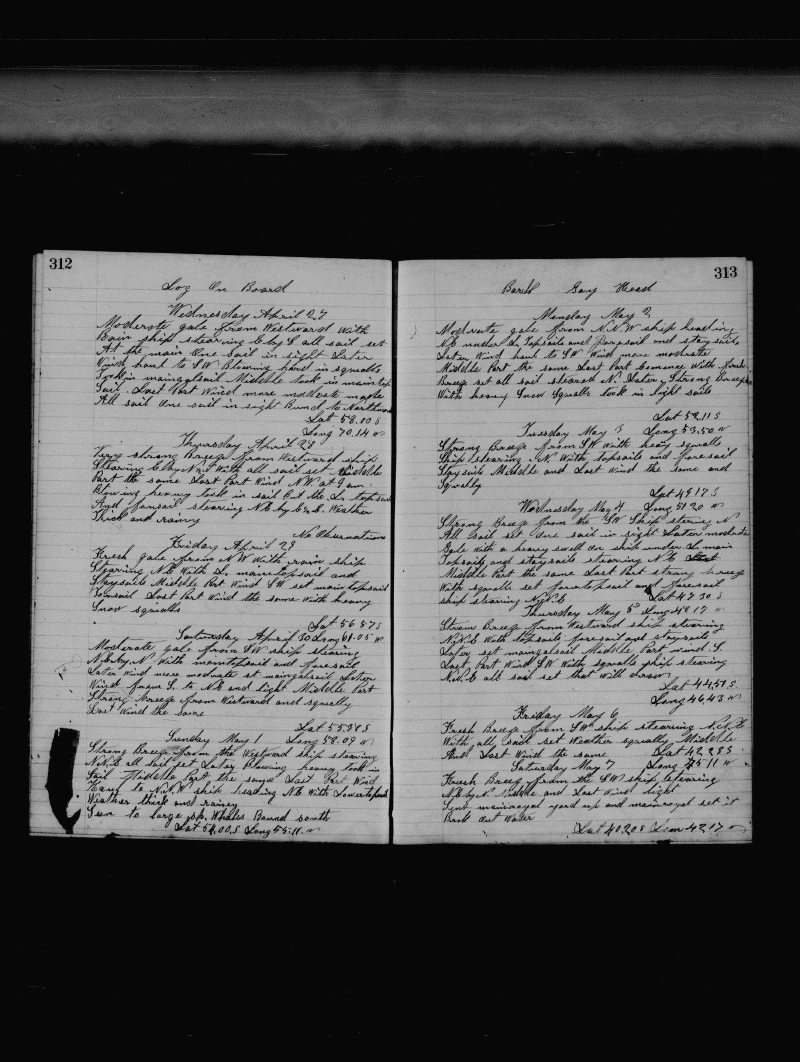 312
Log On Board
Wednesday April 27
Moderate gale from Westward with
Rain ship stearing E by S all sail set
At the main One Sail in sight Later
Wind haul to SW Blowing hard in squalls
Took in maingalsail Middle took in maintop
Sail. Last Part Wind more moderate made
All sail One sail in sight Bound to Northward
Lat 58.00 S
Long 70.14 W
Thursday April 28
Very strong Breeze from Westward ship
Stearing E by N With all sail set Middle
Part the same Last Part Wind NW at 9 am
Blowing heavy took in sail Got the L. topsail
And foresail stearing NE by E Weather
Thick and rainy
No Observations
Friday April 29
Fresh gale from NW With rain ship
Stearing NE With L. maintopsail and
Staysails Middle Part Wind SW set maintopsail
Foresail Last Part Wind the same with heavy
Snow squalls
Lat 56.57 S
Saturday April 30 Long 61.05 W
Moderate gale from SW ship stearing
NE by N With maintopsail and foresail
Later Wind more moderate set maingalsail Later
Wind from S. to NE and light Middle Part
Strong breeze from Westward and squally
Last Wind the same
Lat 55.38 S
Sunday May 1 Long 58.09 W
Strong Breeze from the Westward ship stearing
NNE all sail set Later Blowing heavy took in
Sail Middle Part the same Last Part Wind
Haul to NNW ship heading NE With Lower topsails
Weather thick and rainey
Seen to large Whales Bound south
Lat 54.00 S Long 55.11 W
313
Bark Gay Head
Monday May 2
Moderate gale from NNW ship heading
NE under L Topsails and foresail and staysails
Later Wind haul to SW Wind more moderate
Middle Part the same Last Part Comence With
Breeze set all sail steared N. Later Strong Breeze
With heavy Snow Squalls took in light sails
Lat 52.11 S
Tuesday May 3 Long 53.50 W
Strong Breeze from SW With heavy squalls
Ship stearing N. With topsails and foresail
Staysails Middle and Last Wind the same and
Squally
Lat 49.17 S
Wednesday May 4 Long 51.20 W
Strong Breeze from the SW Ship stering N
All sail set One sail in sight Later moderate
Gale With a heavy swell on ship under L. main
Topsails and staysails stearing NE
Middle Part the same Last Part strong breeze
With squalls set foretopsail and foresail
ship stearing N by E Lat 47.30 S
Thursday May 5 Long 49.17 W
Strom Breeze from Westward ship stearing
N by E With topsails foresail and staysails
Later set maingalsail Middle Part wind S.
Last Part Wind SW With squalls ship stearing
N by E all sail set that will draw
Lat 44.51 S
Long 46.43 W
Friday May 6
Fresh Breeze from SW ship stearing N by E
With all Sail set Weather squally Middle
And Last Wind the same Lat 42.28 S
Saturday May 7 Long 45.11 W
Fresh Breeze from the SW ship stearing
NE by N. Middle and Last Wind light
Sent mainroyal yard up and mainroyal set it
Broke out Water
Lat 40.20 S Lon 42.17 W